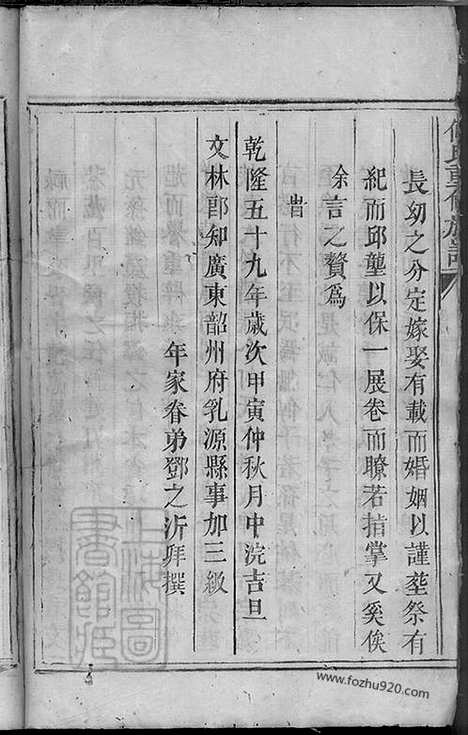 氏重修族譜
長幼之分定嫁娶有載而婚姻以謹塟祭有
紀而邱壟以保一展卷而瞭若指掌又奚俟
余言之贅為
旹
乾隆五十九年歲次甲寅仲秋月中浣吉旦
文林郎知廣東韶州府乳源縣事加三級
年家眷弟鄧之沂拜撰
上海圖
書館藏
www.fozhu920.com